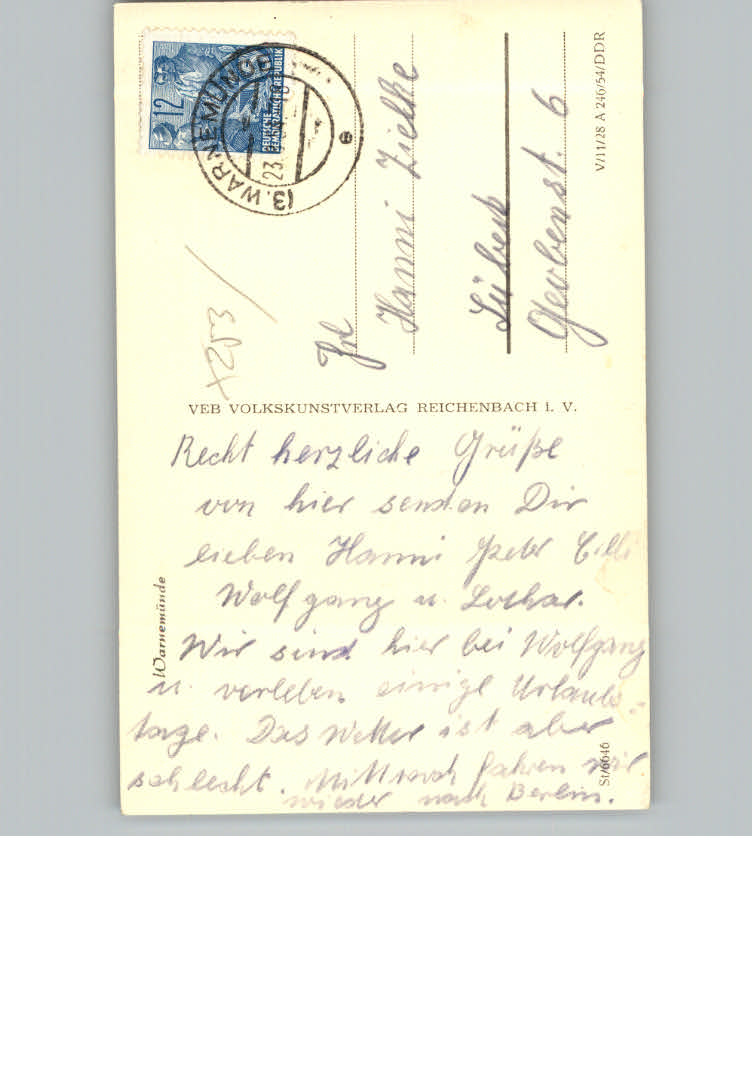 12
DEUTSCHE
DEMOKRATISCHE REPUBLIK
(3. WARNEMÜNDE
23.
e
Frl
Hanni Zielke
Lübeck
Gerbenst. 6
V/11/28 A 246/54/DDR
VEB VOLKSKUNSTVERLAG REICHENBACH i. V.
Warnemünde
Recht herzliche Grüße
von hier senden Dir
lieben Hanni Peter Cilli
Wolfgang u. Lothar.
Wir sind hier bei Wolfgang
u. verleben einige Urlaubs-
tage. Das Wetter ist aber
schlecht. Mittwoch fahren wir
wieder nach Berlin.
St/6646